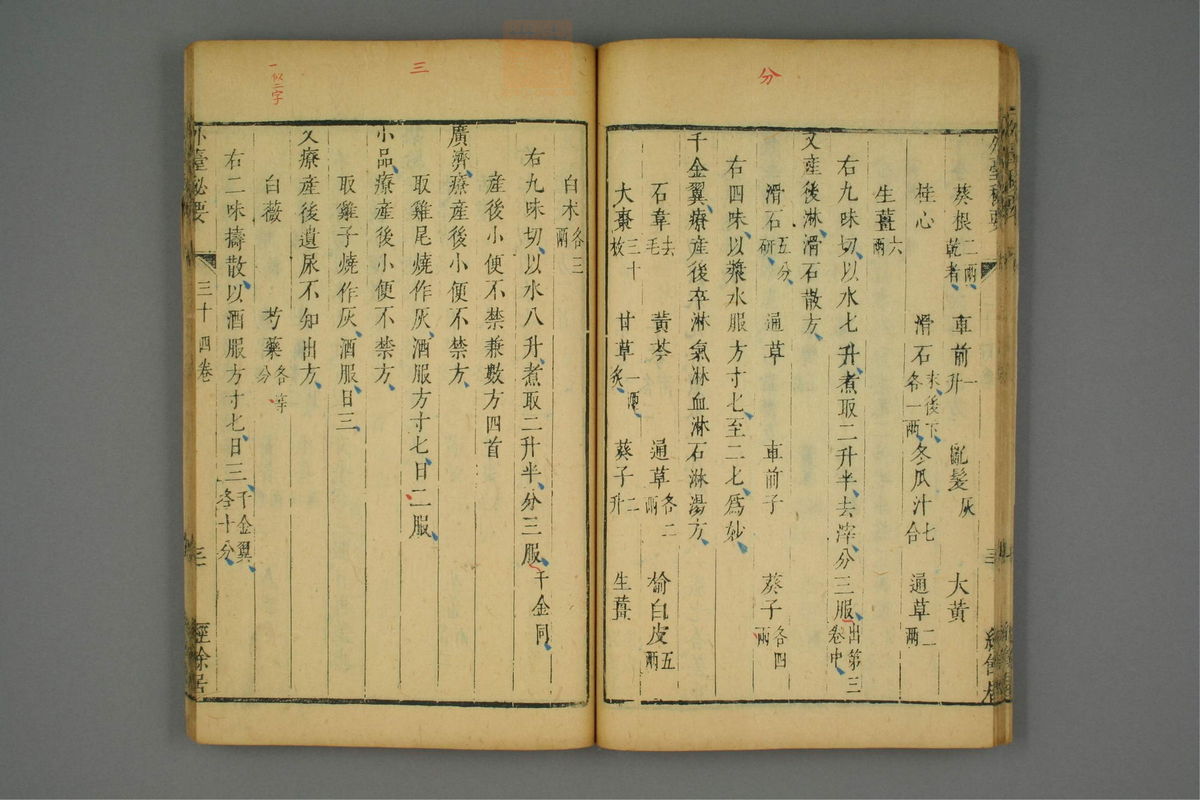 分
葵根二兩乾者 車前一升 亂髮灰 大黃
桂心 滑石末後下各一兩 冬瓜汁七合 通草二兩
生薑六兩
右九味切以水七升煮取二升半去滓分三服出第三卷中
又產後淋滑石散方
滑石五分研 通草 車前子 葵子各四兩
右四味以漿水服方寸匕至二匕為妙
千金翼療產後卒淋氣淋血淋石淋湯方
石韋去毛 黃芩 通草各二兩 榆白皮五兩
大棗三十枚 甘草一兩炙 葵子二升 生薑
三
一似二字
白朮各三兩
右九味切以水八升煮取二升半分三服千金同
產後小便不禁兼數方四首
廣濟療產後小便不禁方
取雞尾燒作灰酒服方寸匕日二服
小品療產後小便不禁方
取雞子燒作灰酒服日三
又療產後遺尿不知出方
白薇 芍藥各等分
右二味擣散以酒服方寸匕日三千金翼各十分
外臺秘要 三十四卷 三 經餘居